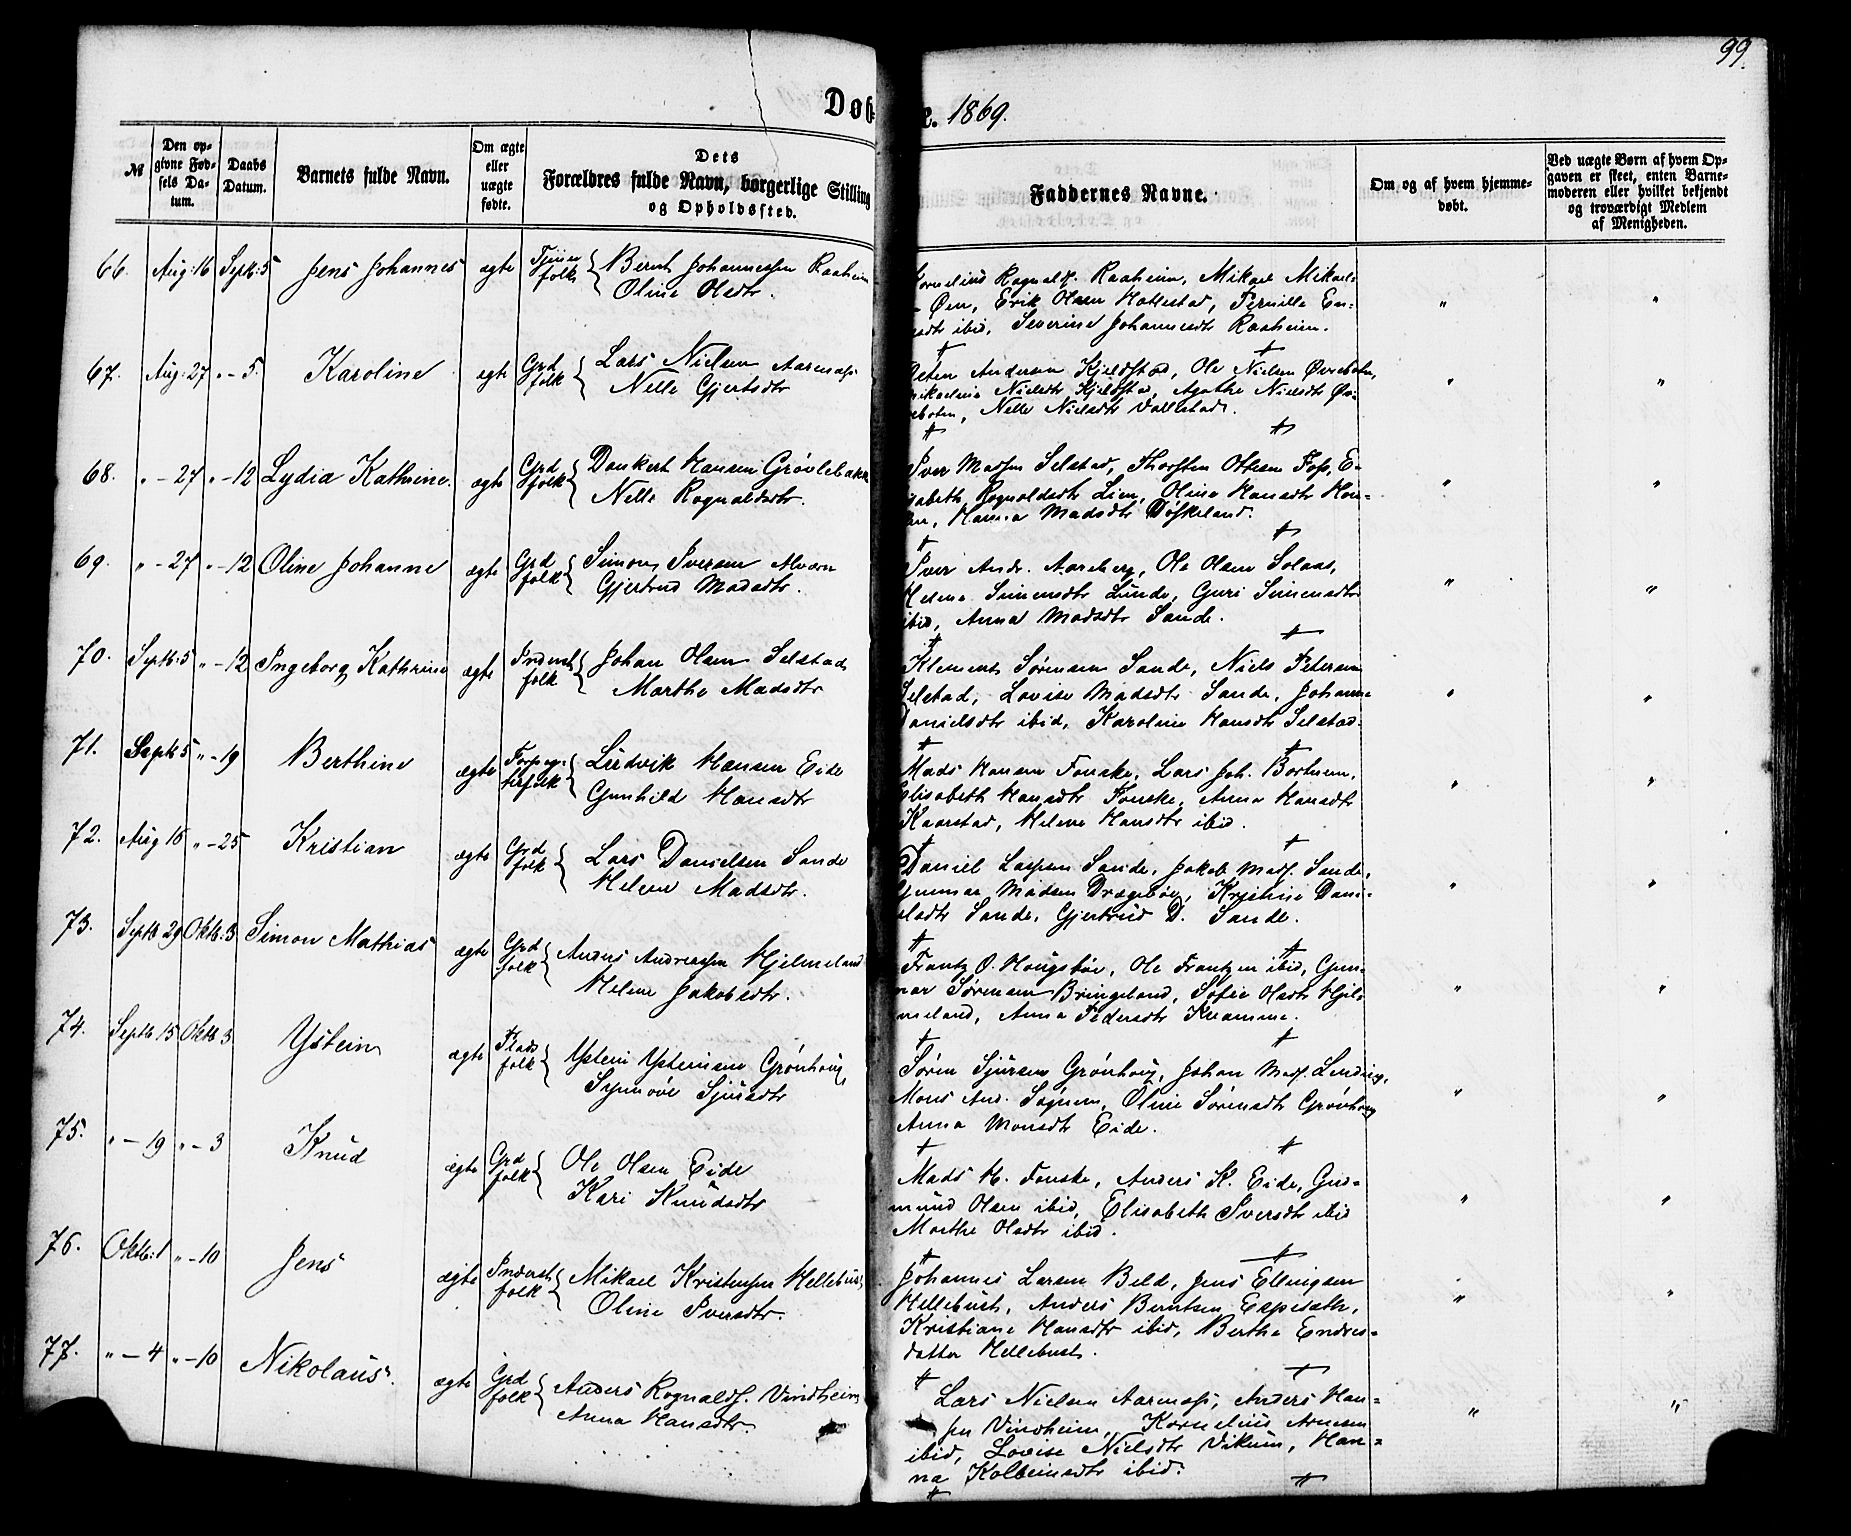 99.
Døbte. 1869.
№
Den opgivne Fødsels Datum.
Daabs Datum.
Barnets fulde Navn.
Om ægte eller uægte fødte.
Dets Forældres fulde Navn, borgerlige Stilling og Opholdssted.
Faddernes Navne.
Om og af hvem hjemmedøbt.
Ved uægte Børn af hvem Opgaven er skeet, enten Barnemoderen eller hvilket bekjendt og troværdigt Medlem af Menigheden.
66. Aug: 16 Septb: 5 Jens Johannes ægte Tjener folk { Bernt Johannessen Raaheim
Oline Olsdtr.
Kornelius Rognaldsen Raaheim, Mikael Mikaels
Øen, Erik Olsen Hattestad, Pernille En-
ibid, Severine Johannesdtr Raaheim. " "
67. Aug: 27 " - 5. Karoline ægte Grd folk { Lars Nielsen Aarnæss
Nelle Gjertsdtr
Peter Andersen Kjeldstad, Ole Nielsen Øvrebotn,
Mikaeline Nielsdtr Kjeldstad, Agathe Nielsdtr Øv-
rebotn, Nelle Nielsdtr Vallestad. " "
68. " - 27 " - 12 Lydia Kathrine. ægte Grd folk { Dankert Hansen Grøvlebakk
Nelle Rognaldsdtr.
Iver Madsen Selstad, Thorsten Ottesen Foss, E-
lisabeth Rognaldsdtr Lien, Oline Hansdtr
Hanna Madsdtr Døskeland. " "
69. " - 27 " - 12 Oline Johanne ægte Grd folk { Simon Iversen Alvørn
Gjertrud Madsdtr.
Iver Andr. Aareberg, Ole Olsen Solaas,
Helene Simensdtr Lunde, Guri Simensdtr
ibid, Anna Madsdtr Sande. " "
70. Septb: 5 " - 12 Ingeborg Kathrine ægte Inderst folk { Johan Olsen Selstad
Marthe Madsdtr
Klement Sørensen Sande, Niels Petersen
Selstad, Lovise Madsdtr Sande, Johanne
Danielsdtr ibid, Karoline Hansdtr Selstad. " "
71. Septb 5 " - 19 Berthine ægte Forpagterfolk { Ludvik Hansen Eide
Gunhild Hansdtr
Mads Hansen Fonske, Lars Joh. Bortnem,
Elisabeth Hansdtr Fonske, Anna Hansdtr
Kaarstad, Helene Hansdtr ibid. " "
72. Aug 15 " - 25 Kristian ægte Grd folk { Lars Danielsen Sande
Helene Madsdtr.
Daniel Larsen Sande, Jakob Mads. Sande,
Gunnar Madsen Dragebøe, Kristine Dani-
elsdtr Sande, Gjertrud D. Sande. " "
73. Septb 29 Oktb: 3 Simon Mathias ægte Grd folk { Anders Andreassen Hjelmeland
Helene Jakobsdtr.
Frantz O. Hougsbøe, Ole Frantzen ibid, Gun-
nar Sørensen Bringeland, Sofie Olsdtr Hjel-
meland, Anna Pedersdtr Kvamme. " "
74. Septb 15 Oktb 3 Ystein ægte Plads folk { Ystein Ysteinsen Grønhoug
Synnøve Sjursdtr
Søren Sjursen Grønhoug, Johan Mads.
Mons And. Sognem, Oline Sørensdtr Grønhoug
Anna Monsdtr Eide. " "
75. " - 19 " - 3 Knud ægte Grd folk { Ole Olsen Eide
Kari Knudsdtr
Mads H. Fonske, Anders K. Eide, Gud-
mund Olsen ibid, Elisabeth Iversdtr ibid
Marthe Olsdtr ibid. " "
76. Oktb: 1 " - 10 Jens ægte Inderst folk { Mikael Kristensen Hellebust
Oline Iversdtr.
Johannes Larsen Beld, Jens Ellingsen
Hellebust, Anders Berntsen Espesæth,
Kristiane Hansdtr ibid, Berthe Endres-
datter Hellebust. " "
77. " - 4 " - 10 Nikolaus. ægte Grd folk { Anders Rognalds. Vindheim
Anna Hansdtr.
Lars Nielsen Aarnæss, Anders Han-
sen Vindheim, Kornelius Arnesen
ibid, Lovise Nielsdtr Vikum, Han-
na Kolbeinsdtr ibid. " "